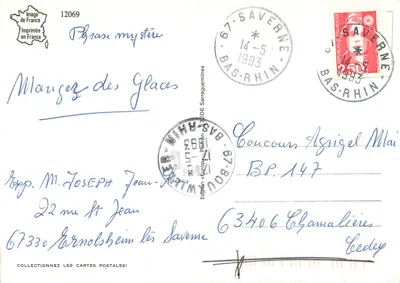 Image
de France
Imprimée
en France
12069
Phrase mystère
Mangez des Glaces
67-SAVERNE
*
14-5
1993
BAS-RHIN
67-SAVERNE
*
14-5
1993
BAS-RHIN
67-BOUXWILLER
17-5
1993
BAS-RHIN
Concours Agrigel Mai
BP. 147
63406 Chamalières
Cedex
Exp. M. JOSEPH Jean-
22 rue St Jean
67330 Ernolsheim lès Saverne
COLLECTIONNEZ LES CARTES POSTALES!